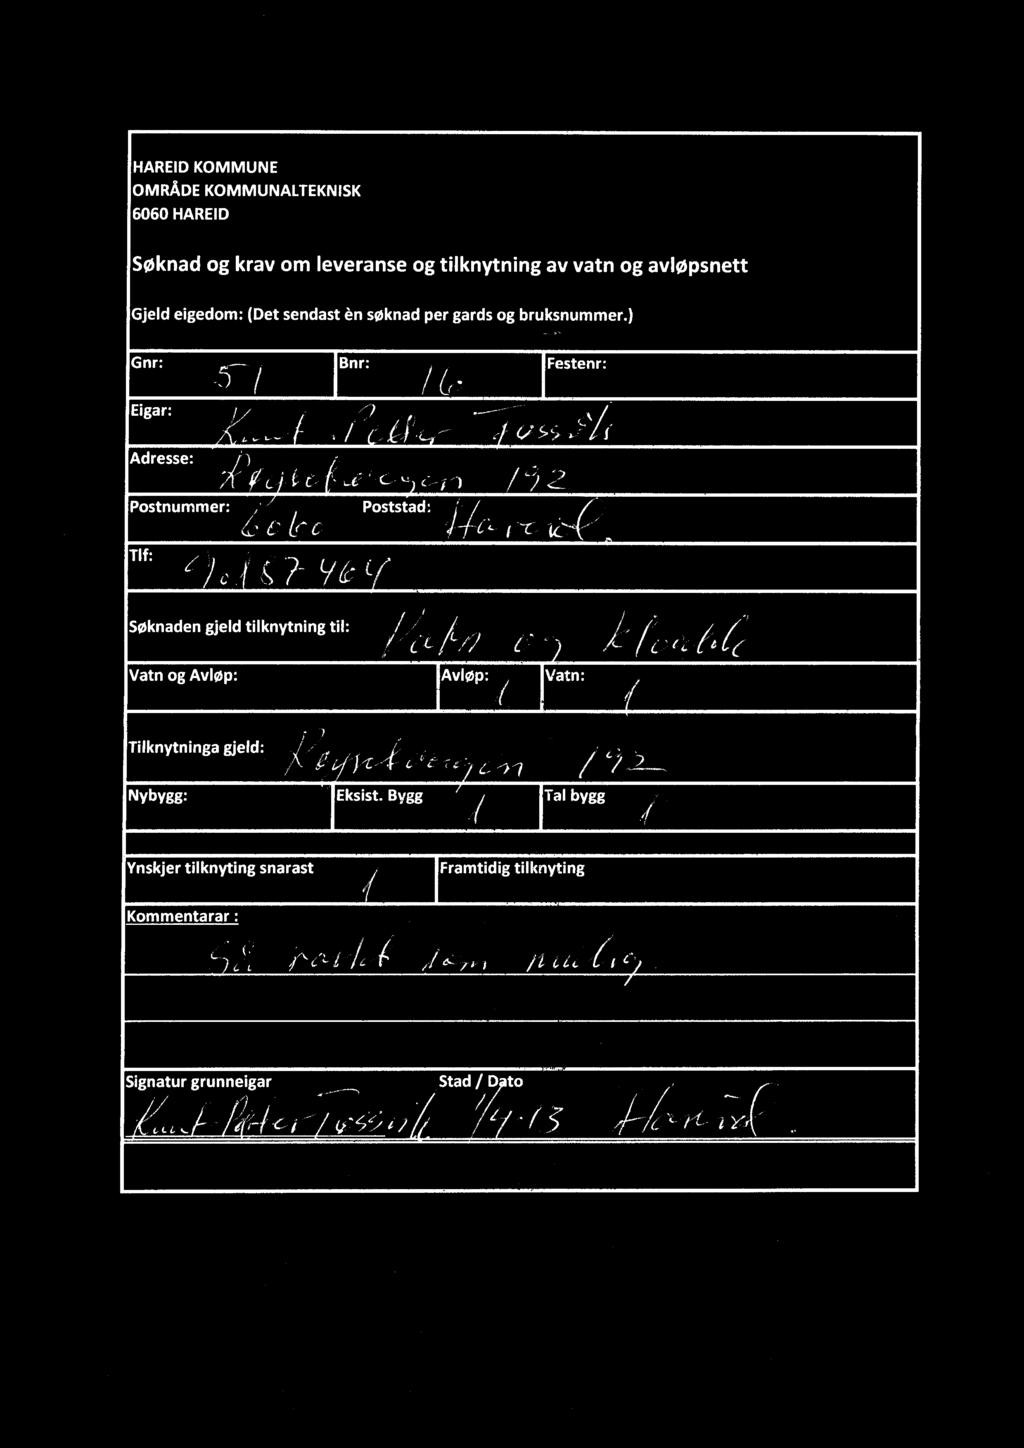 HAREID KOMMUNE
OMRÅDE KOMMUNALTEKNISK
6060 HAREID
Søknad og krav om leveranse og tilknytning av vatn og avløpsnett
Gjeld eigedom: (Det sendast èn søknad per gards og bruksnummer.)
Gnr: 51 Bnr: 16 Festenr:
Eigar: Knut Petter
Adresse: 192
Postnummer: 6060 Poststad: Hareid.
Tlf: 90187464
Søknaden gjeld tilknytning til: Vatn og kloakk
Vatn og Avløp: Avløp: 1 Vatn: 1
Tilknytninga gjeld: 192
Nybygg: Eksist. Bygg 1 Tal bygg 1
Ynskjer tilknyting snarast 1 Framtidig tilknyting
Kommentarar :
Så raskt som mulig.
Signatur grunneigar Stad / Dato
Knut Petter 1/4-13 Hareid.